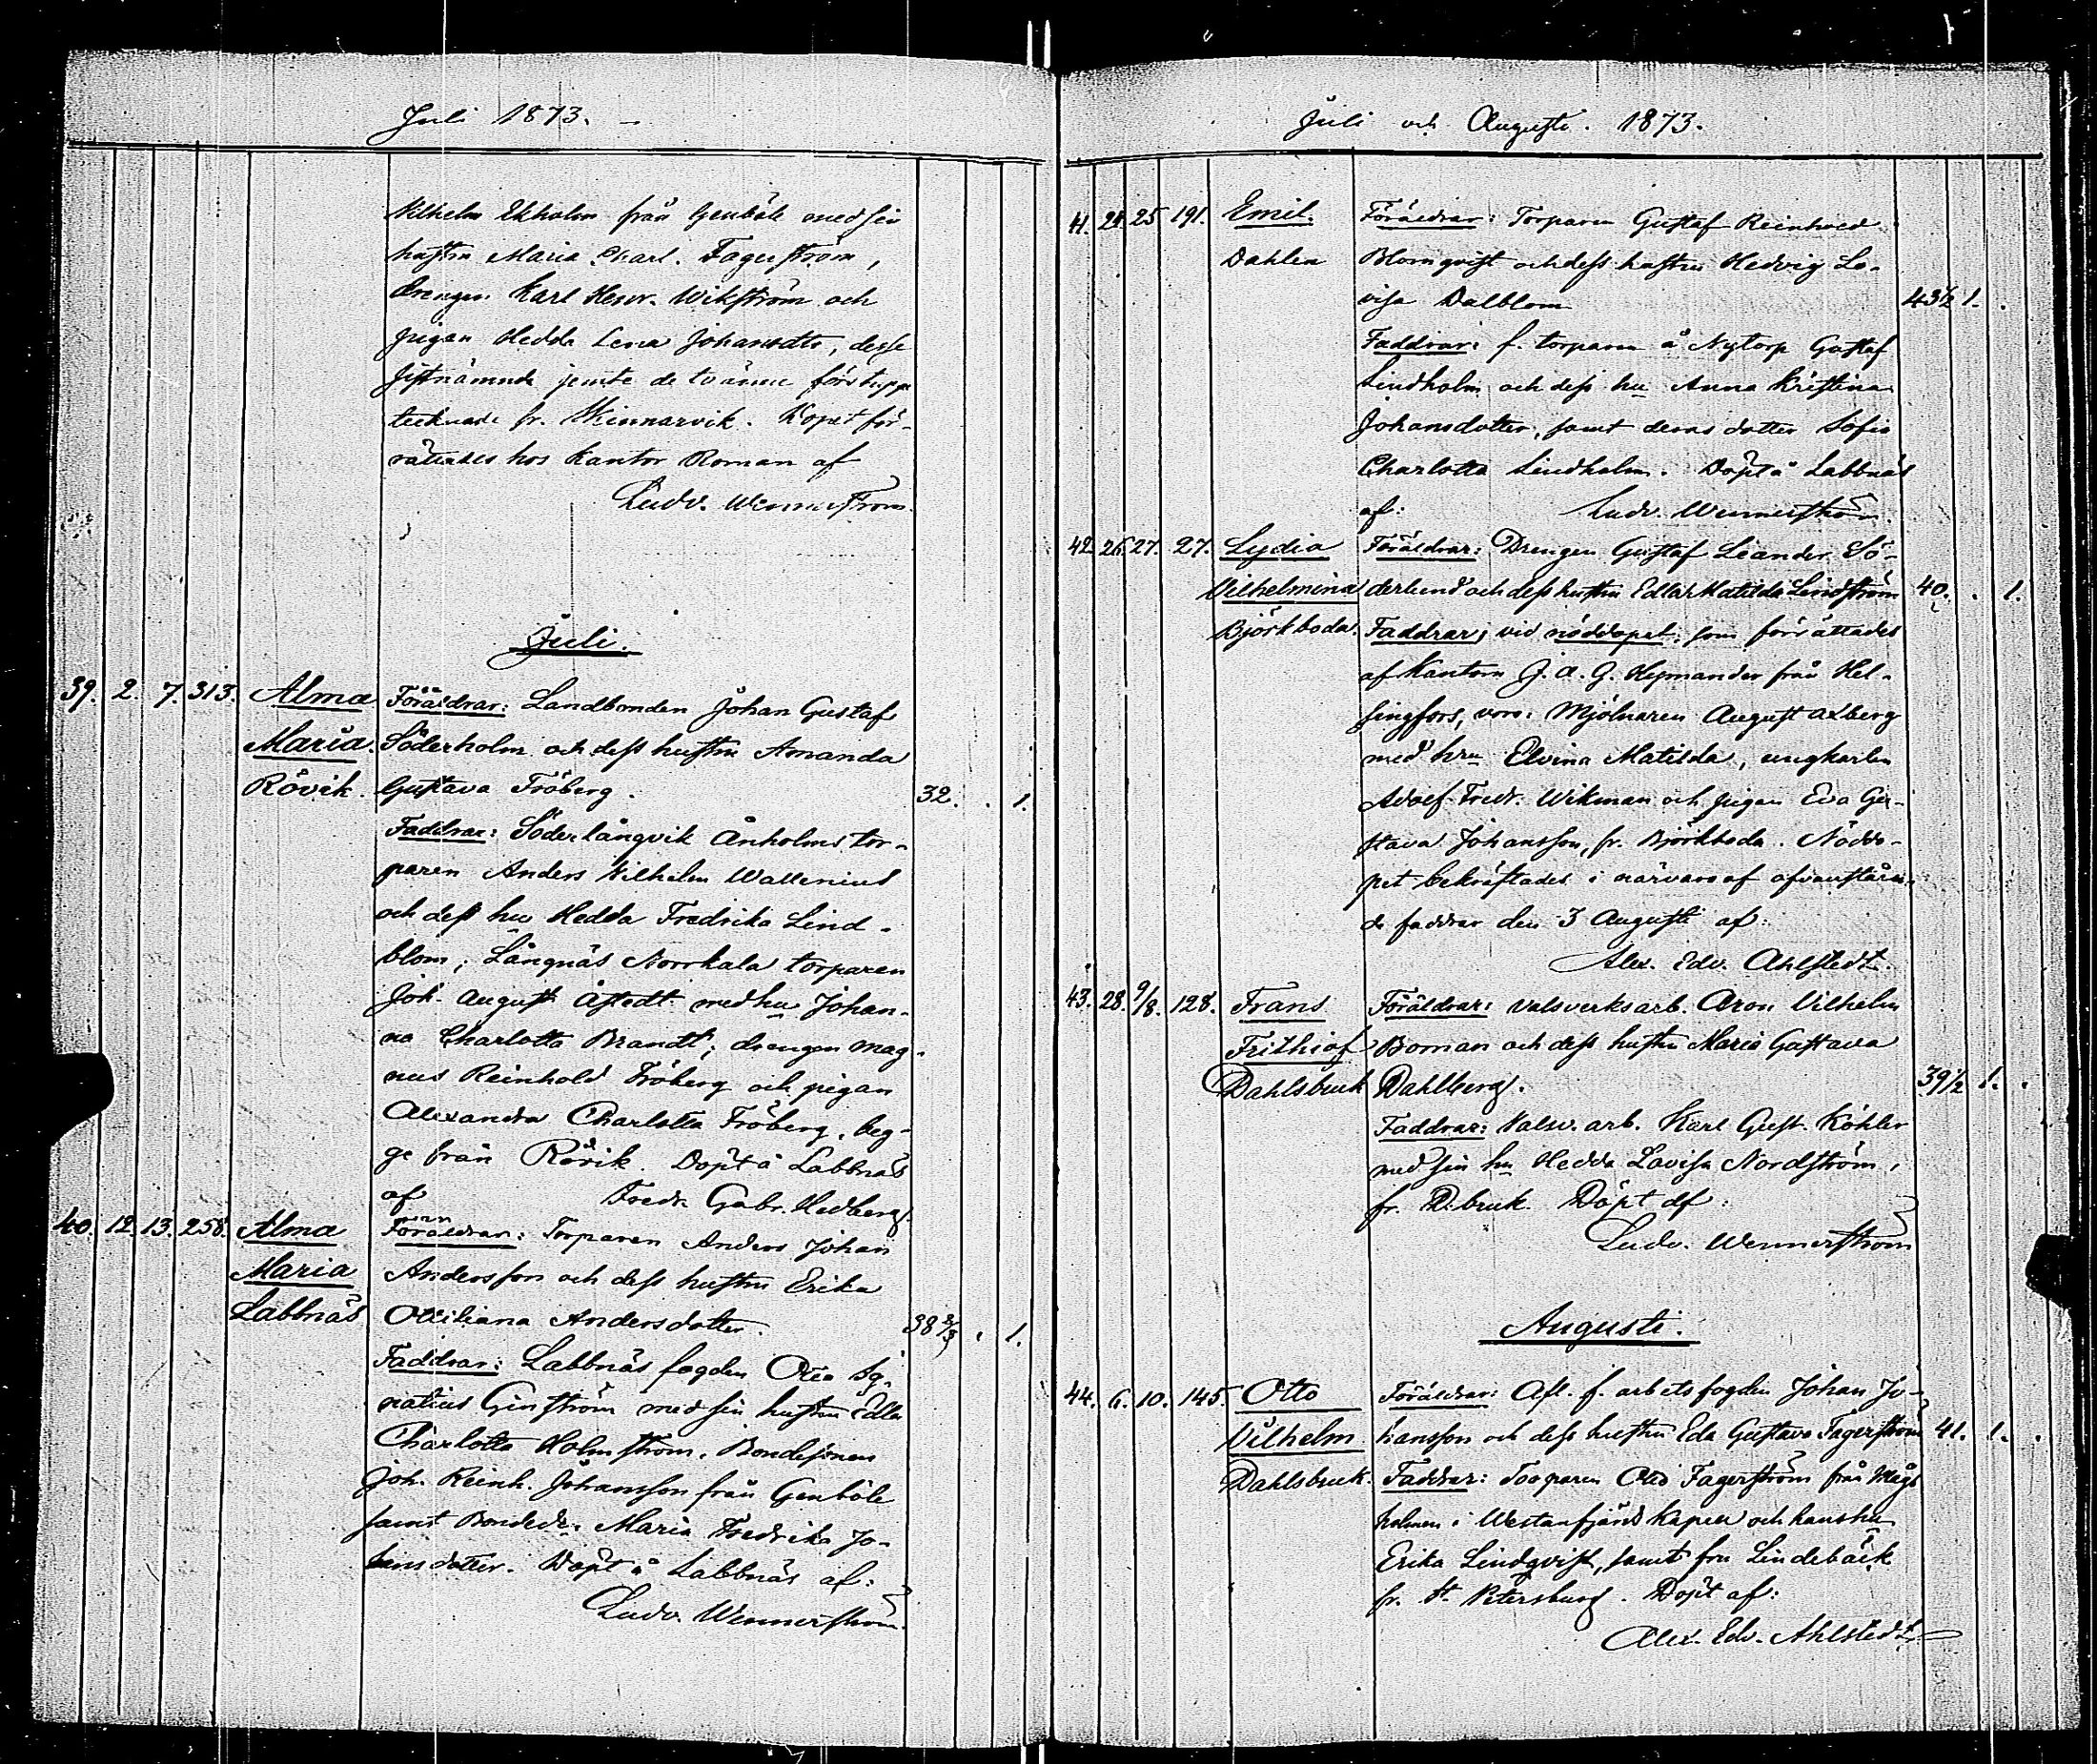 Juli 1873.
Vilhelm Ekholm från Genböle med sin
hustru Maria Charl. Fagerström,
drengen Karl Henr. Wikström och
pigan Hedda Lena Johansdtr, desse
sistnämnda jemte de tvänne först upp
tecknade fr. Skinnarvik. Dopet för-
rättades hos Kantor Roman af
Ludv. Wennerström.
Juli.
39. 2. 7. 313. Alma Föräldrar: Landbonden Johan Gustaf
Maria. Söderholm och dess hustru Amanda
Rövik. Gustava Fröberg. 32. . 1.
Faddrar: Söderlångvik Ånholms tor-
paren Anders Vilhelm Wallenius
och dess hu Hedda Fredrika Lind-
blom; Långnäs Norrkala torparen
Joh. August Åstedt med hu Johan-
na Charlotta Brandt; drengen Mag-
nus Reinhold Fröberg och pigan
Alexandra Charlotta Fröberg, beg-
ge från Rövik. Döpt å Labbnäs
af Fredr. Gabr. Hedberg.
40. 12. 13. 258. Alma Föräldrar: Torparen Anders Johan
Maria Andersson och dess hustru Erika
Labbnäs Ottiliana Andersdotter. 38 2/3 . 1.
Faddrar: Labbnäs fogden Otto Ig-
natius Ginström med sin hustru Edla
Charlotta Holmström. Bondesonen
Joh. Reinh. Johansson från Genböle
samt Bondedr. Maria Fredrika Jo-
hansdotter. Döpt å Labbnäs af:
Ludv. Wennerström.
Juli och Augusti. 1873.
41. 24. 25 191. Emil. Föräldrar: Torparen Gustaf Reinhold
Dahlen Blomqvist och dess hustru Hedvig Lo-
visa Dalblom 43 1/2 1. .
Faddrar: f. torparen å Nytorp Gustaf
Lindholm och dess hu Anna Kristina
Johansdotter, samt deras dotter Sofia
Charlotta Lindholm. Döpt å Labbnäs
af: Ludv. Wennerström.
42. 26. 27. 27. Lydia Föräldrar: Drengen Gustaf Leander Sö-
Vilhelmina derlund och dess hustru Edla Matilda Lindström 40. . 1.
Björkboda. Faddrar, vid nöddopet, som förrättades
af Kantorn J. A. G. Hymander från Hel-
singfors, voro: Mjölnaren August Axberg
med hru Elvina Matilda, ungkarlen
Adolf Fredr. Wikman och pigan Eva Gu-
stava Johansson, fr. Björkboda. Nöddo-
pet bekräftades i närvaro af ofvanståen-
de faddrar den 3 Augusti af:
Alex. Edv. Ahlstedt.
43. 28. 9/8. 128. Frans Föräldrar: Valsverksarb. Aron Vilhelm
Frithiof Boman och dess hustru Maria Gustava
Dahlsbruk Dahlberg. 39 1/2 1. .
Faddrar: Valsv. arb. Karl Gust. Köhler
med sin hu Hedda Lovisa Nordström,
fr. D.bruk. Döpt af:
Ludv. Wennerström
Augusti.
44. 6. 10. 145. Otto Föräldrar: Afl. f. arbetsfogden Johan Jo-
Vilhelm. hansson och dess hustru Eda Gustava Fagerström 41. 1. .
Dahlsbruk. Faddrar: Torparen Otto Fagerström från
holmen i Westanfjärds kapell och hans hu
Erika Lindqvist, samt fru Lindebäck
fr. St. Petersburg. Döpt af:
Alex. Edv. Ahlstedt